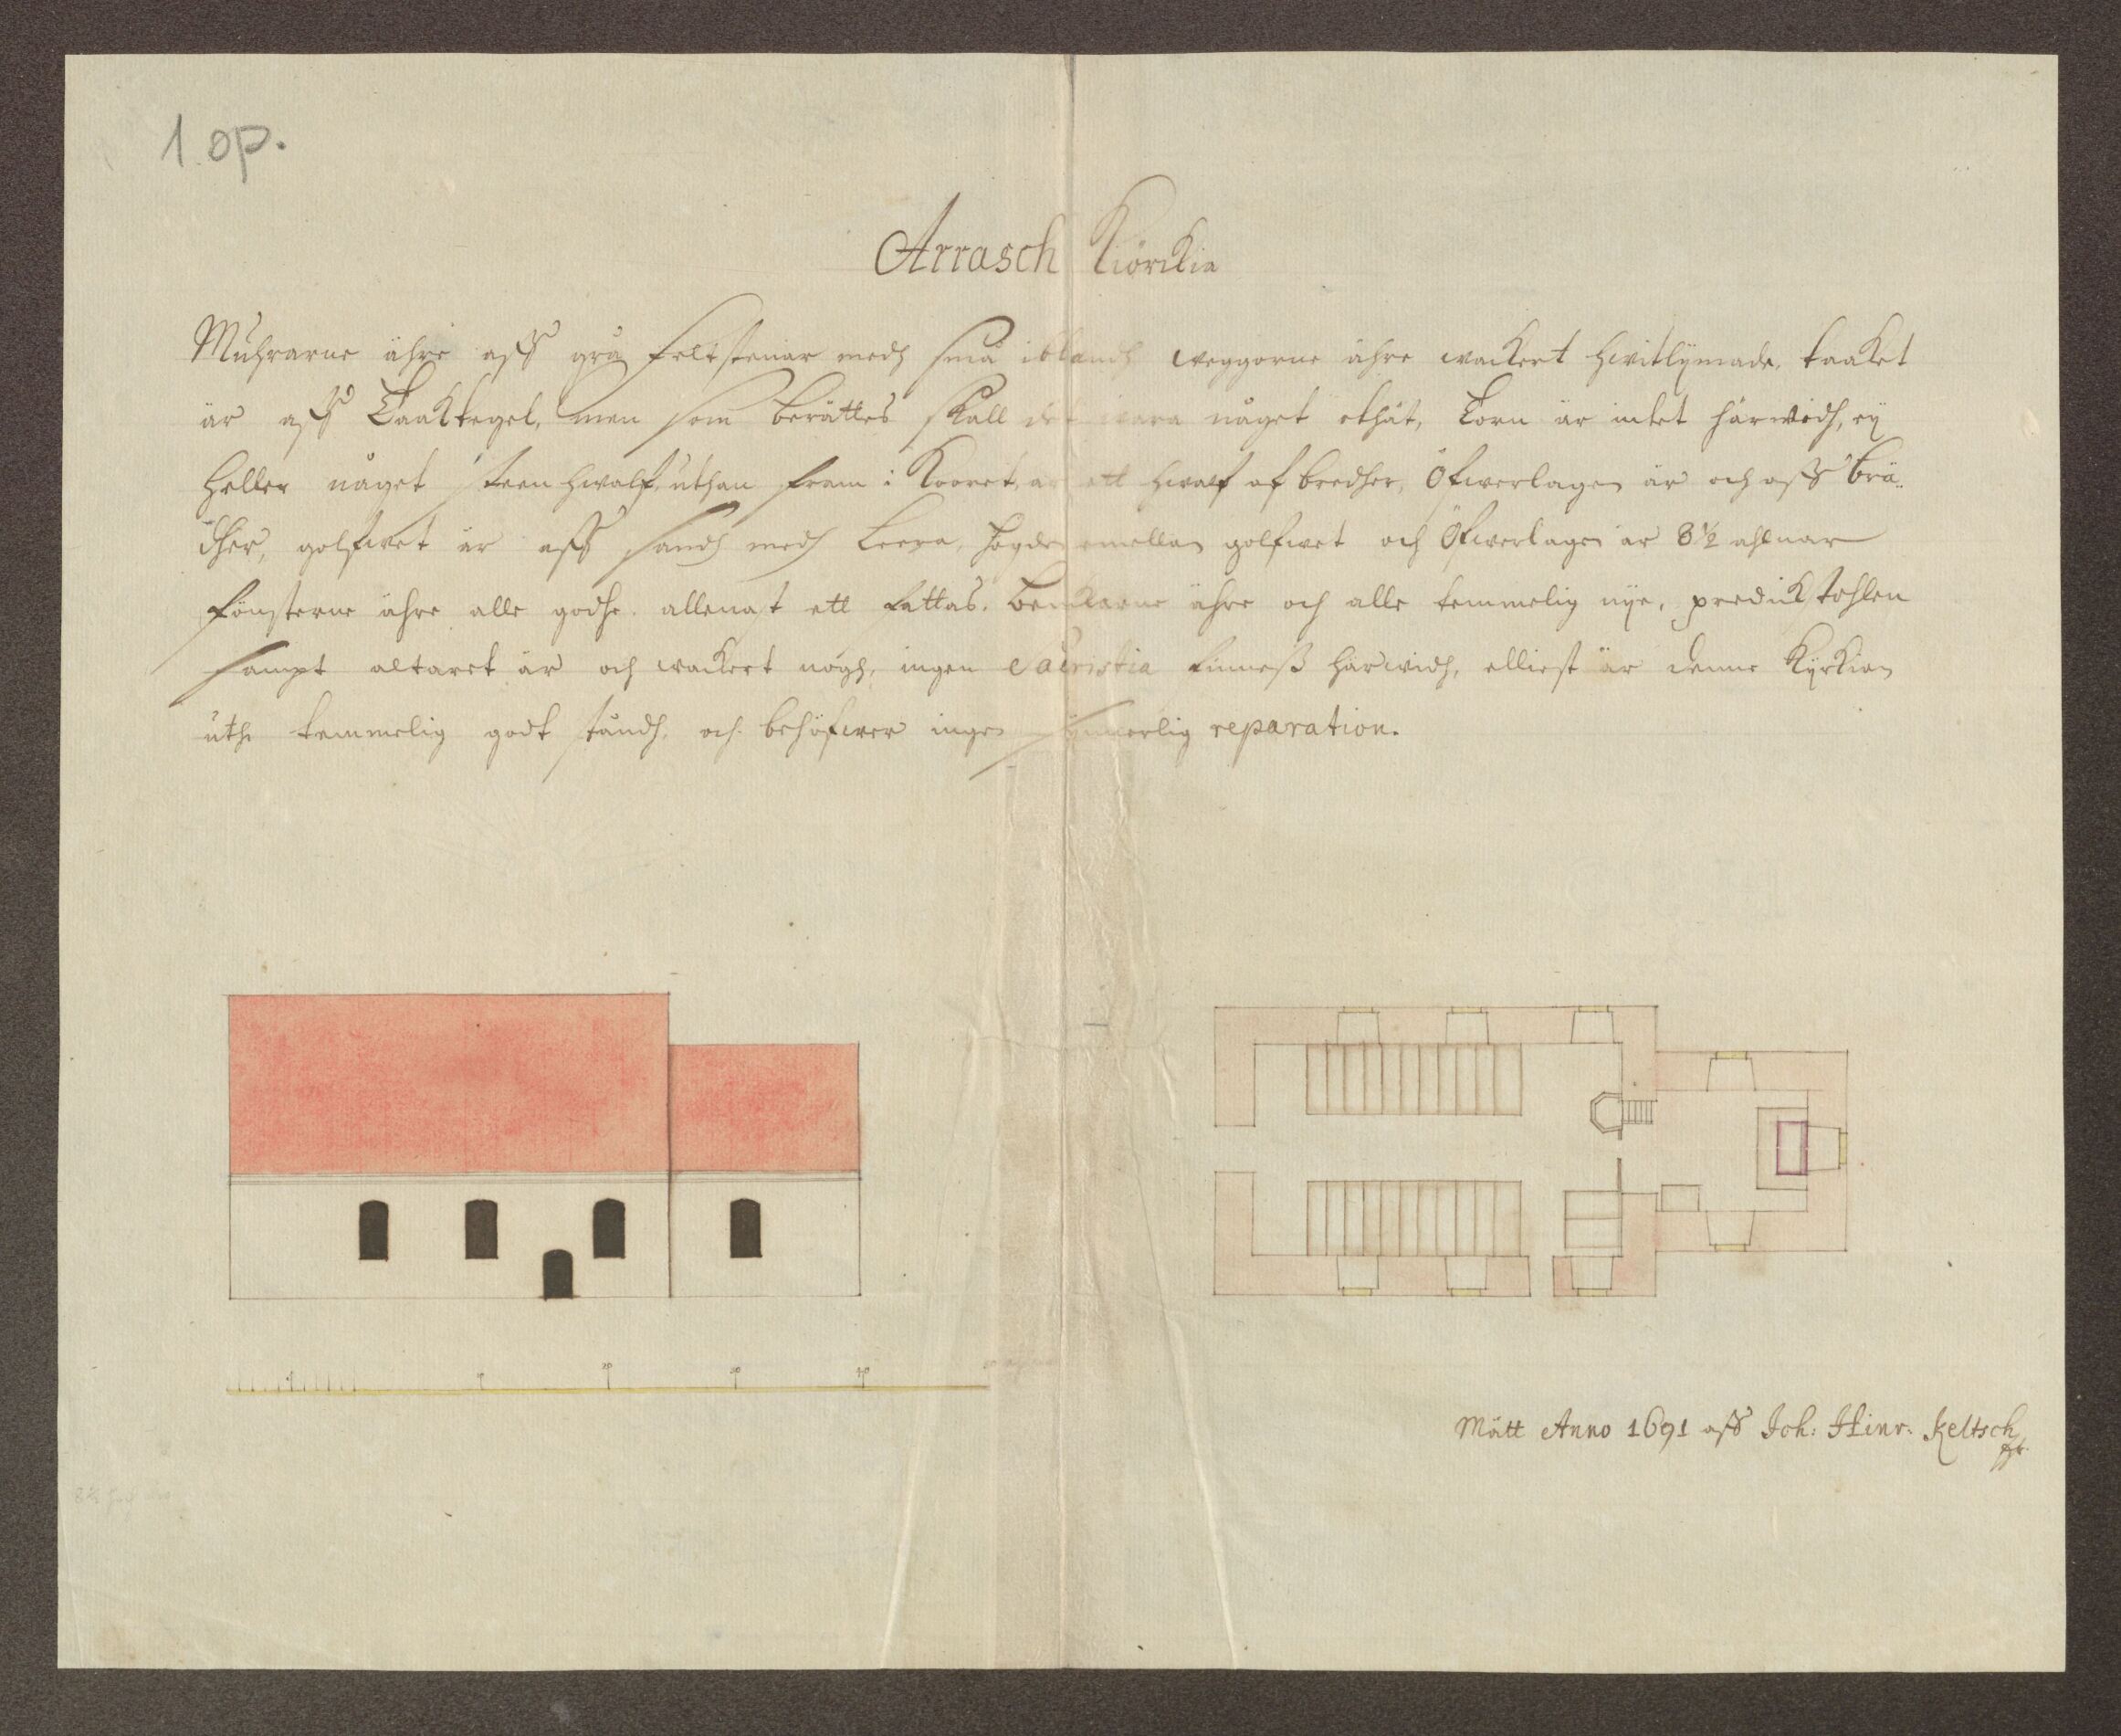 1 op.
Arrasch Kiörckia
Muhrarne ähre aff grå feltstenar medh små iblandh weggorne ähre wackert hwitlijmade, taaket
är aff Taaktegel, men som berättes skall det wara något othät, Torn är intet härwidh, eij
heller något steen hwalf, uthan fram i Kooret, är ett hwalf af bredher, Öfwerlagen är och aff brä-
dher, golfwet är aff sandh medh Leera, högden emellan golfwet och Öfwerlagen är 8½ ahlnar
fönsterne ähre alle godhe allenast ett fattas. Benckarne ähre och alle temmelig nye, predickstohlen
sampt altaret är och wackert nogh, ingen Sacristia finnesß härwidh, elliest är denne Kyrkian
uthi temmelig godt ståndh, och behöfwer ingen synnerlig reparation.
20 30 40
Mätt Anno 1691 aff Joh: Hinr: Keltsch